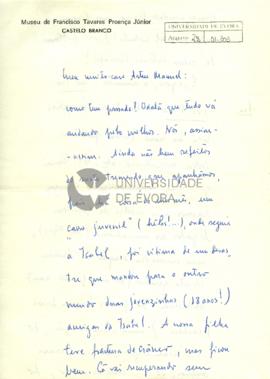 Museu de Francisco Tavares Proença Júnior
CASTELO BRANCO
UNIVERSIDADE DE ÉVORA
Meu muito caro Artur Manuel:
como tem passado? Oxalá que tudo vá
andando pelo melhor. Nós, assim-
-assim. Ainda não bem refeitos
do tremendo que apanhámos,
um
UNIVERSIDADE
DE ÉVORA
carro juvenil" (hélas!...), onde seguia
a Isabel, foi vítima de um desas-
tre que mandou para o outro
mundo duas jovenzinhas (18 anos!)
amigas da Isabel. A nossa filha
teve fractura de crâneo, mas ficou
bem. Cá vai recuperando sem